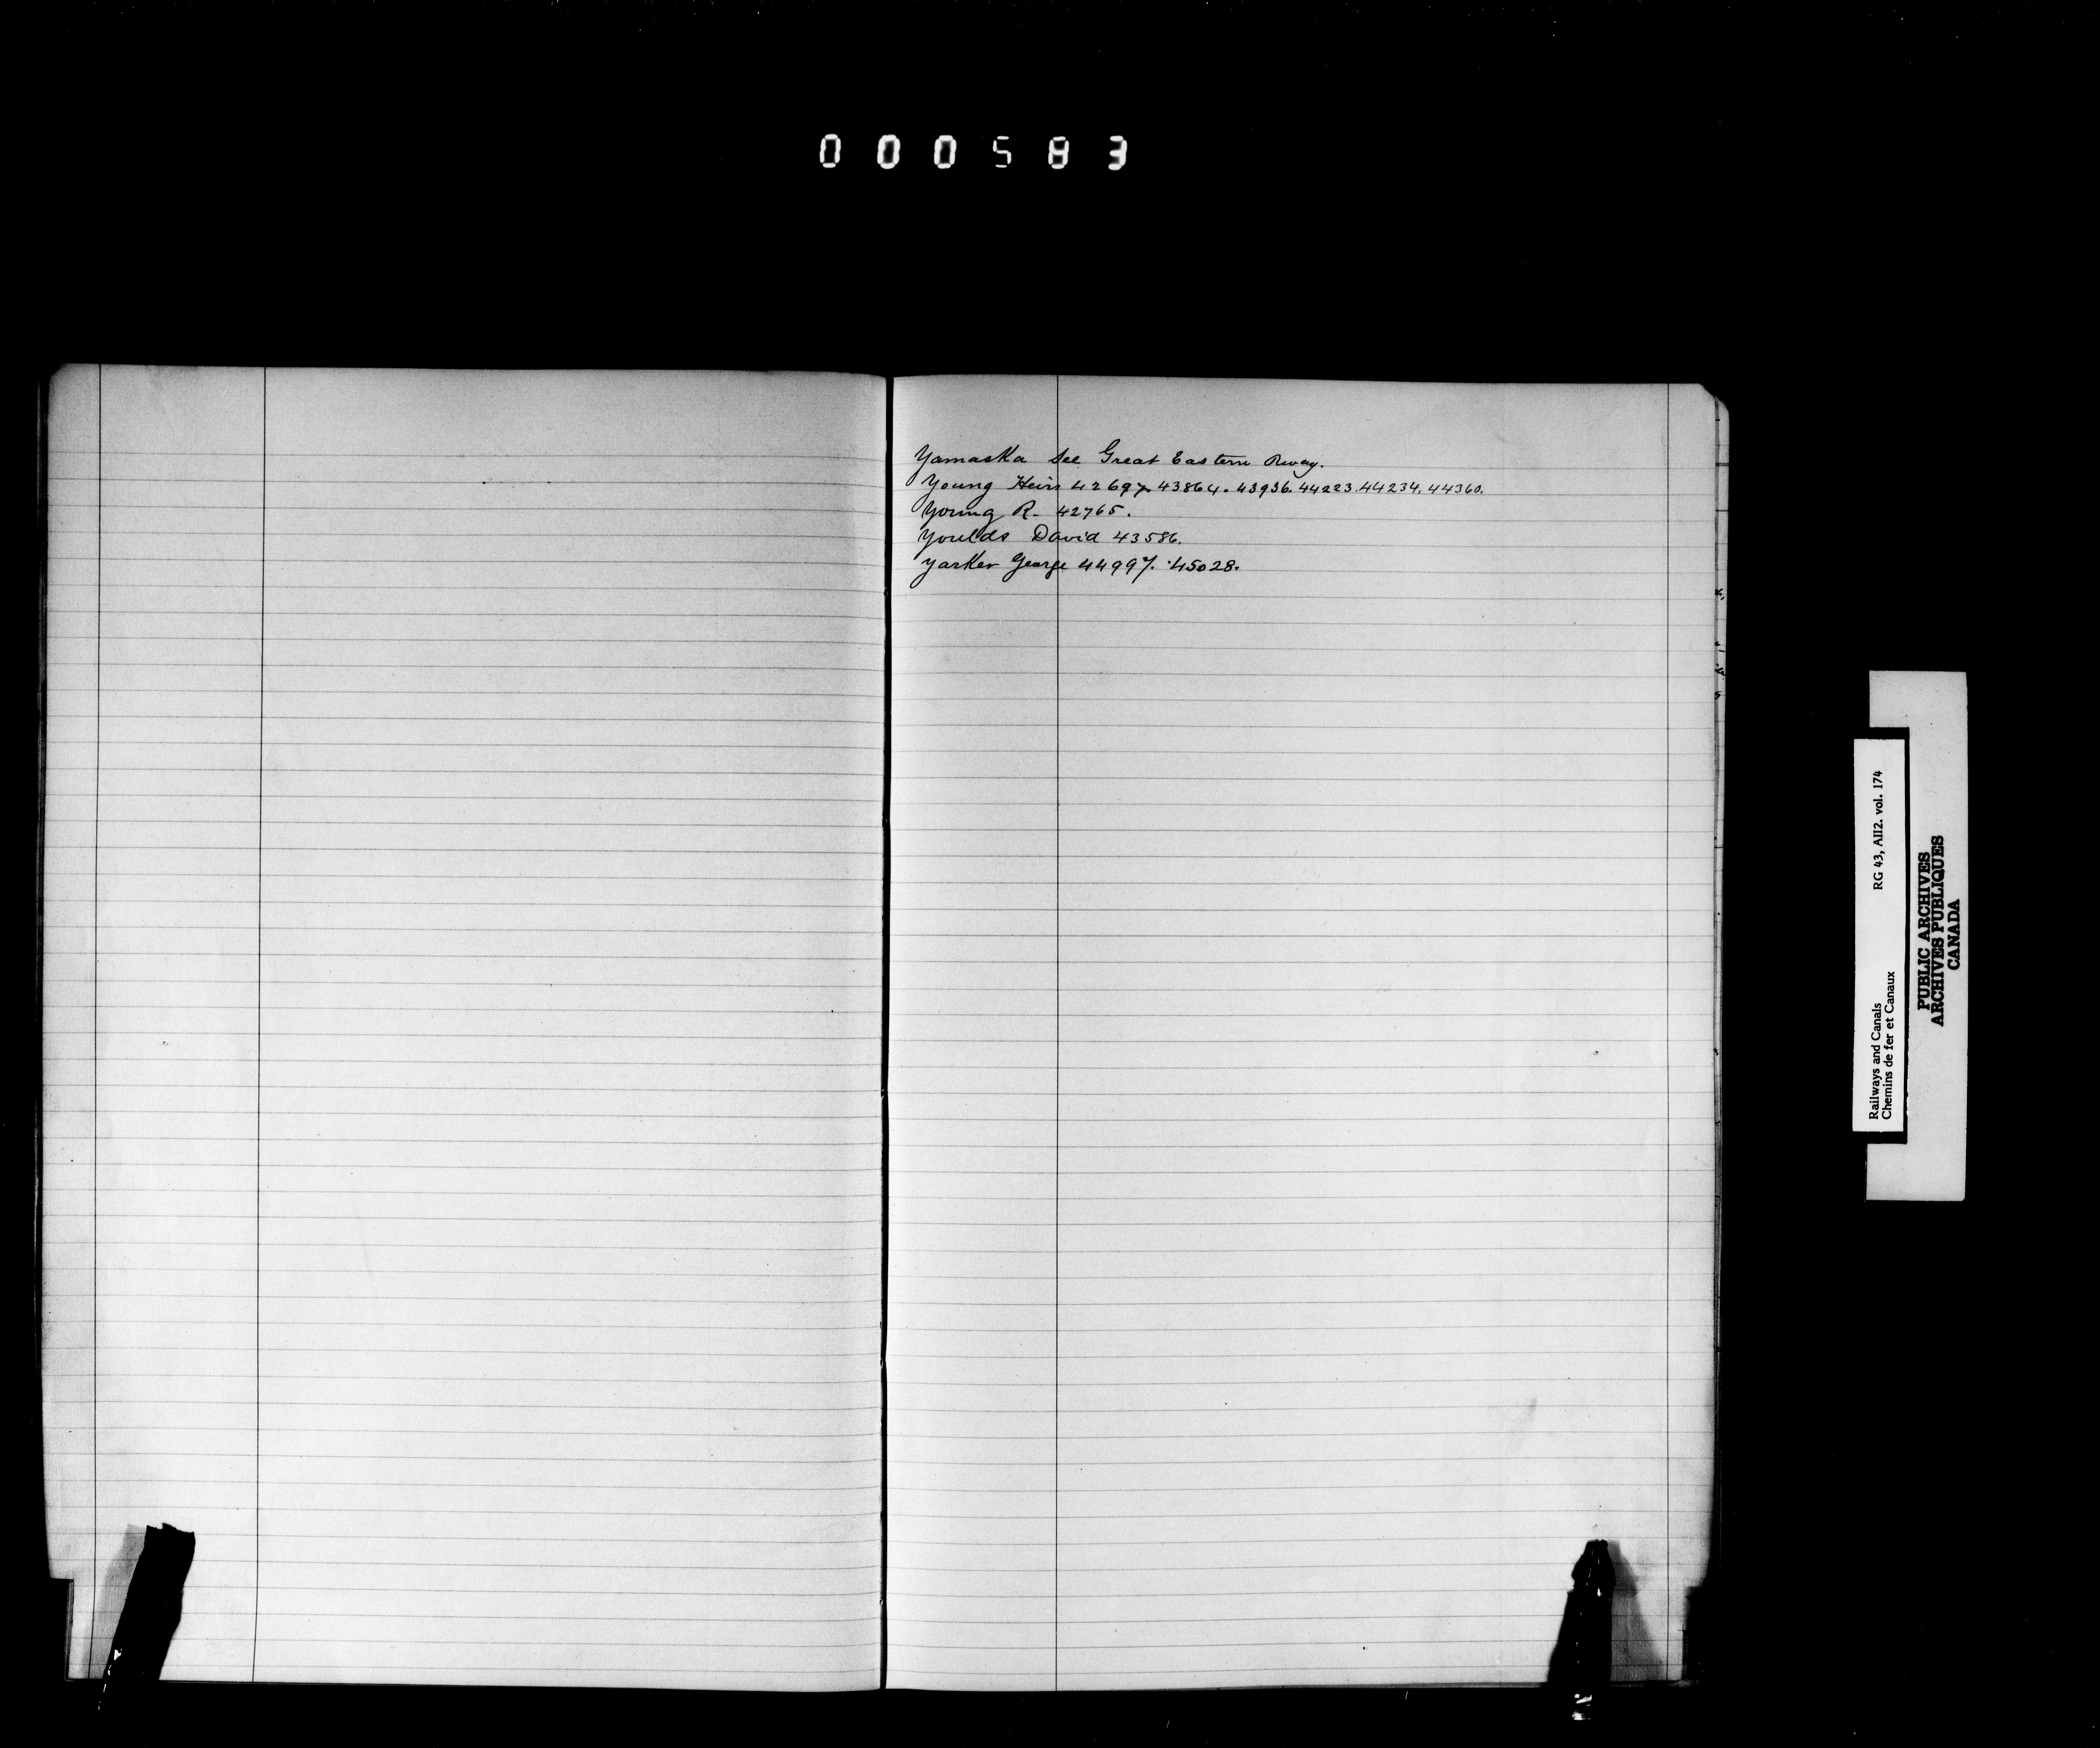 000583
Yamaska See Great Eastern Rway.
Young Heirs 42697. 43864. 43936. 44223. 44234. 44360.
Young R. 42765.
Youlds David 43586.
Yarker George 44997. 45028.
Railways and Canals RG 43, AII2. vol. 174
Chemins de fer et Canaux
PUBLIC ARCHIVES
ARCHIVES PUBLIQUES
CANADA